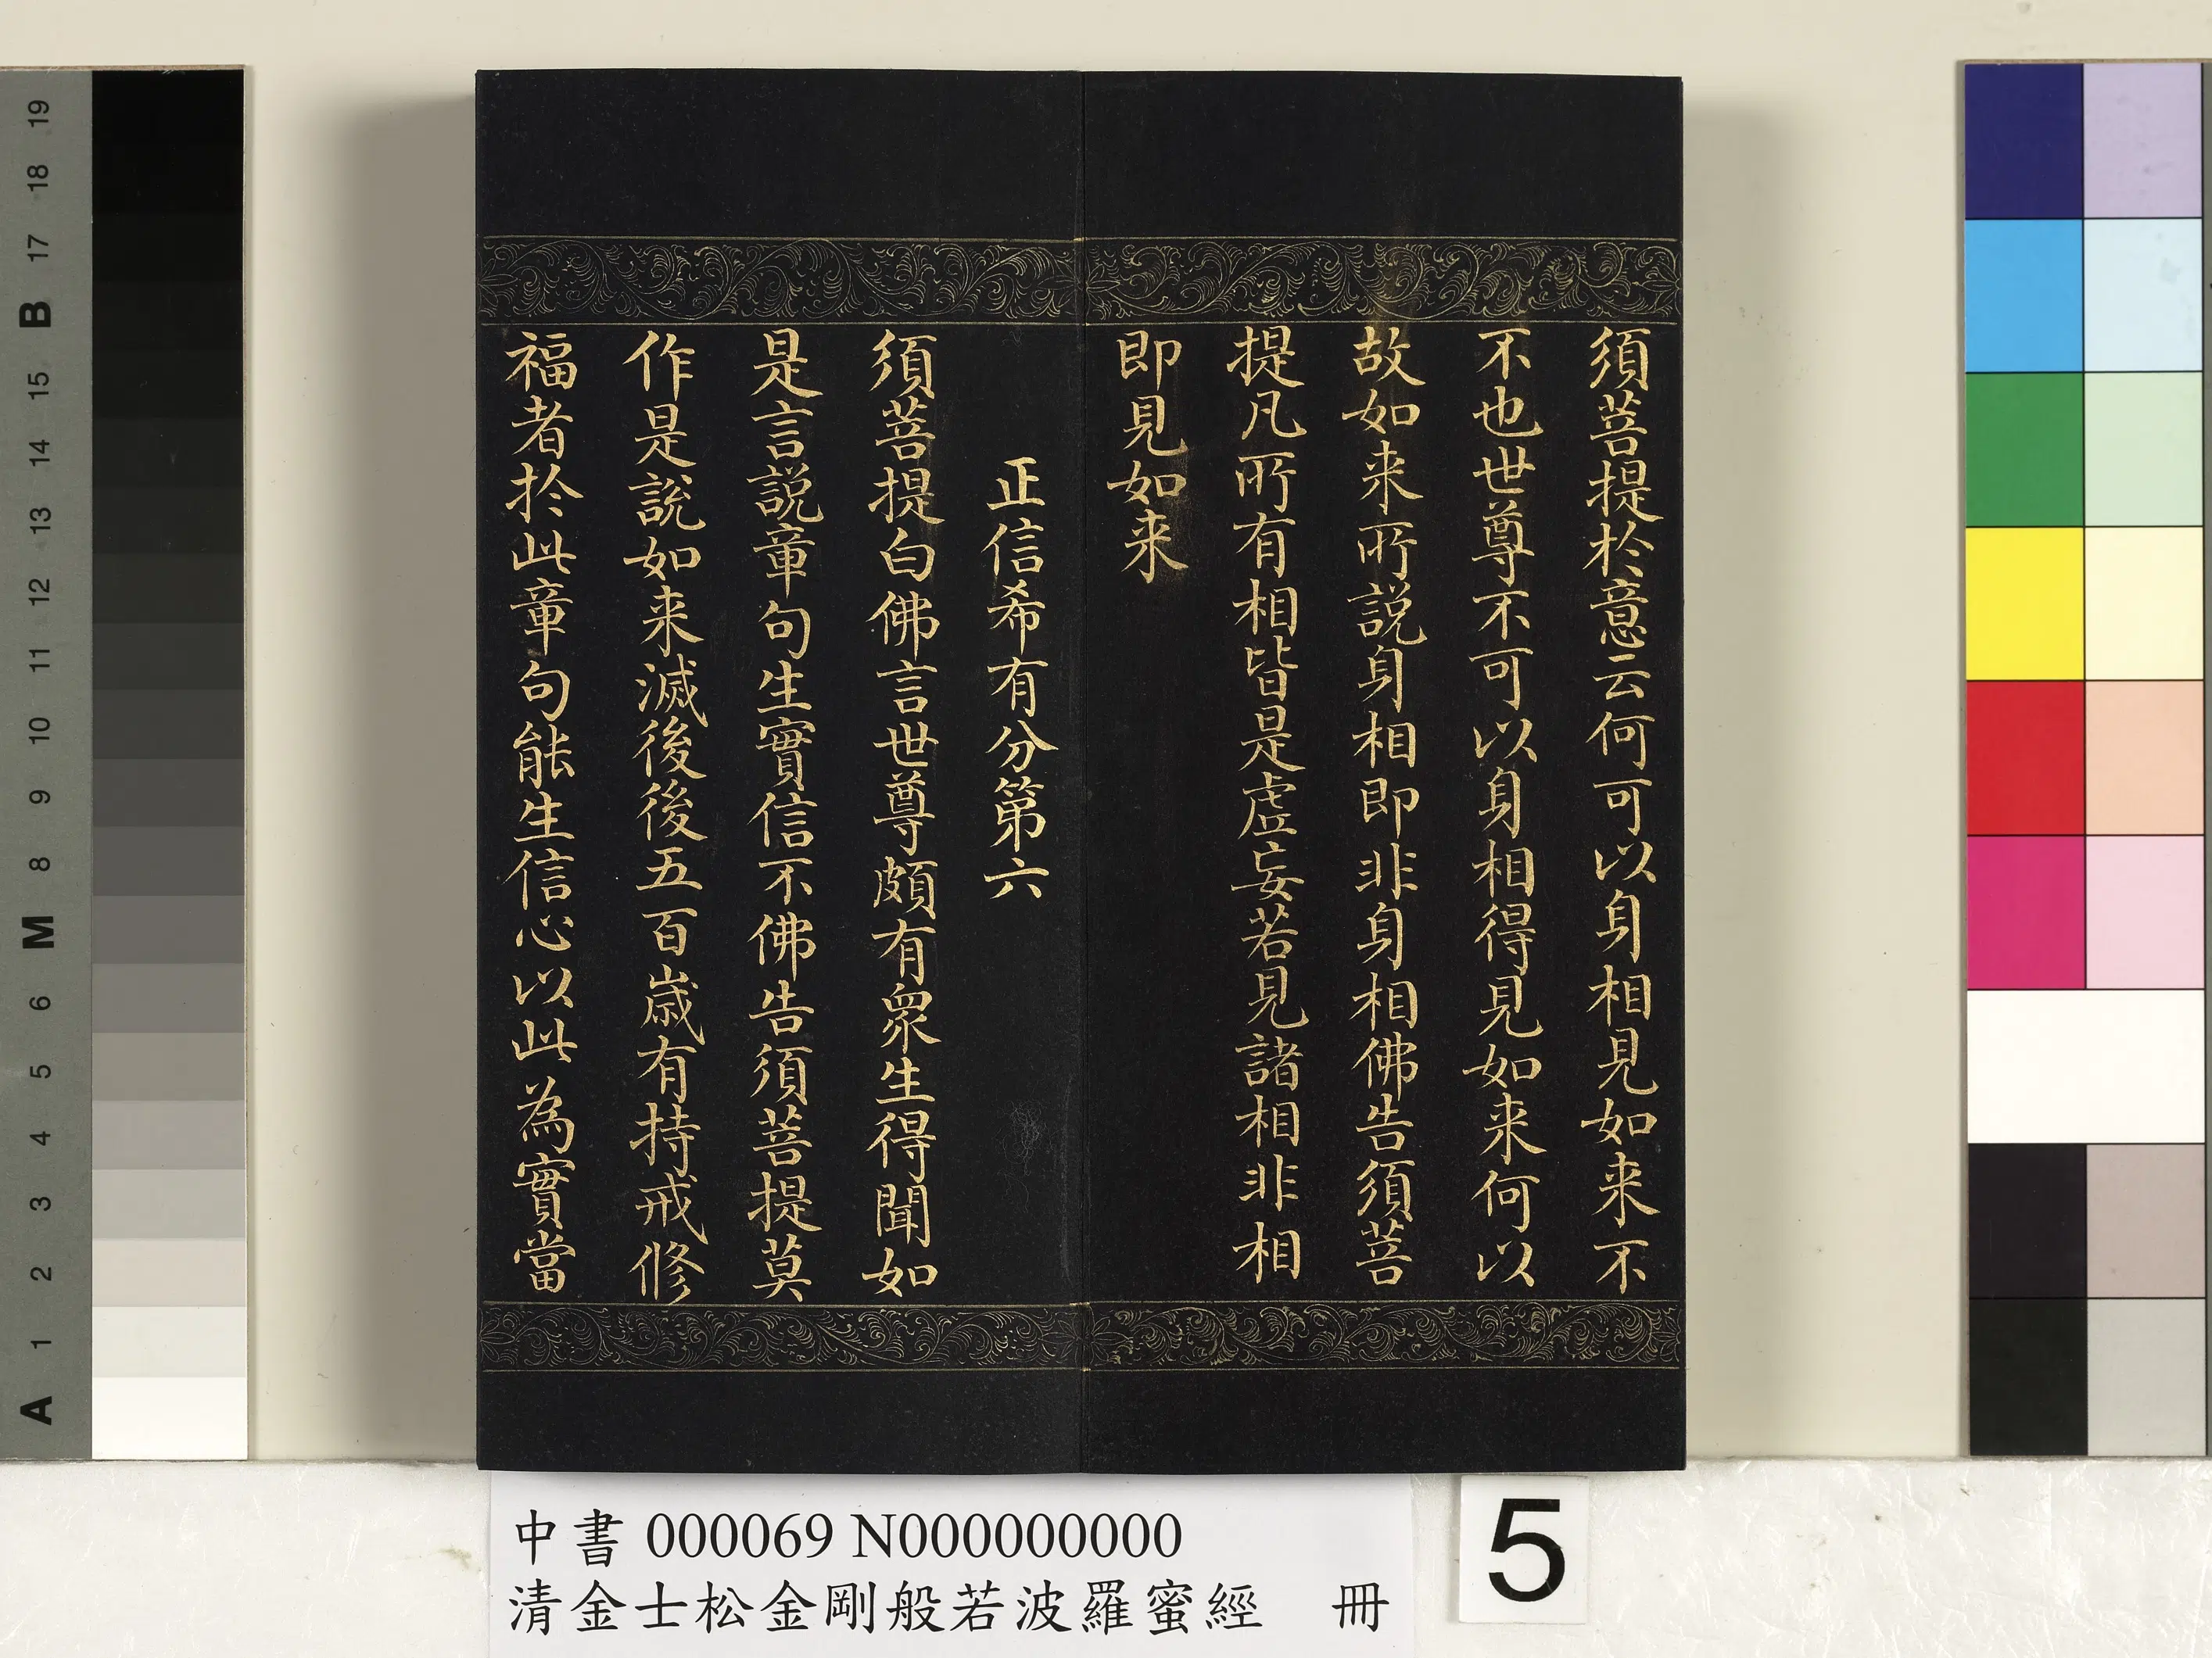 須菩提於意云何可以身相見如来不
不也世尊不可以身相得見如来何以
故如来所説身相即非身相佛告須菩
提凡所有相皆是虚妄若見諸相非相
即見如来
正信希有分第六
須菩提白佛言世尊頗有衆生得聞如
是言説章句生實信不佛告須菩提莫
作是説如来滅後後五百歳有持戒修
福者於此章句能生信心以此為實當
中書 000069 N000000000
清金士松金剛般若波羅蜜經 冊
5
19
18
17
B
15
14
13
12
11
10
9
8
M
6
5
4
3
2
1
A